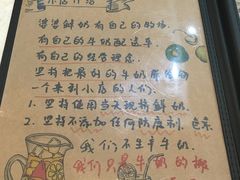 小店介绍
婆婆鲜奶有自己的牧场
有自己的牛奶配送车
有自己的经营理念
坚持把最好的牛奶带给每
一个来到小店的人们
1. 坚持使用当天现挤鲜奶
2. 坚持不添加任何防腐剂、色素
我们不生产牛奶
我们只是牛奶的搬